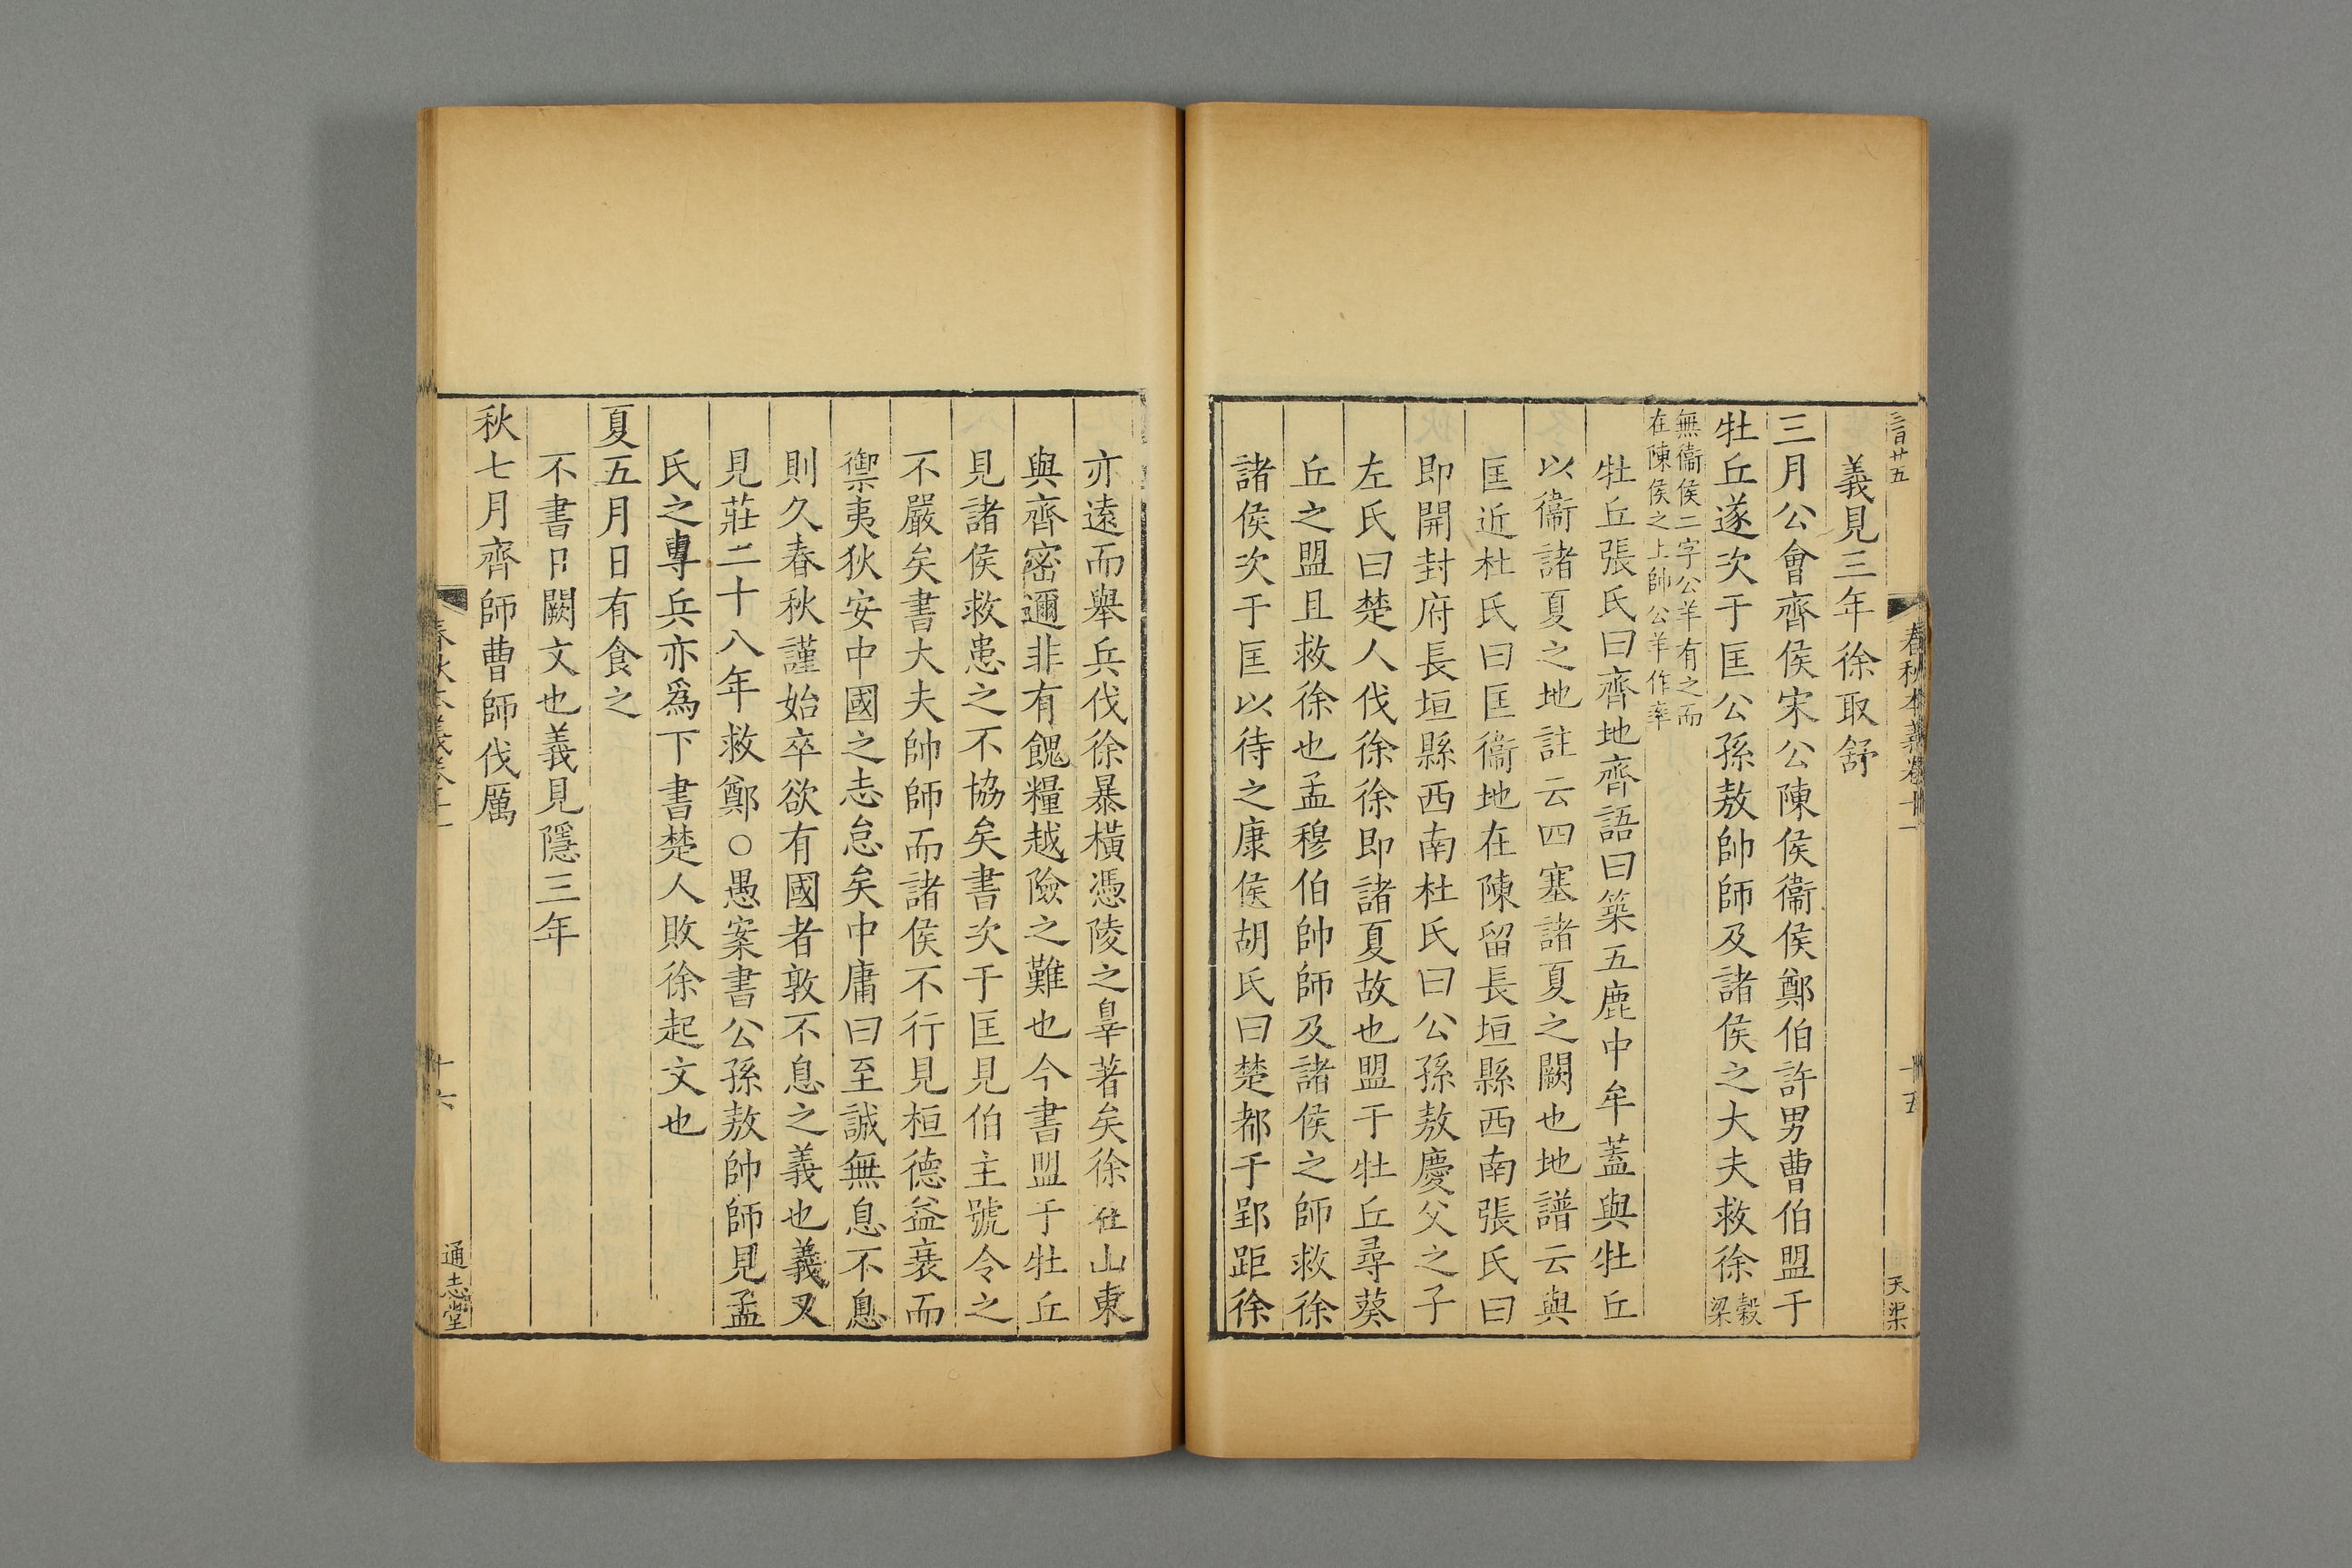 三百廿五
春秋本義卷十一
十五
天渠
義見三年徐取舒
三月公會齊侯宋公陳侯衞侯鄭伯許男曹伯盟于
牡丘遂次于匡公孫敖帥師及諸侯之大夫救徐穀梁
無衞侯二字公羊有之而
在陳侯之上帥公羊作率
牡丘張氏曰齊地齊語曰築五鹿中牟蓋與牡丘
以衞諸夏之地註云四塞諸夏之闕也地譜云與
匡近杜氏曰匡衞地在陳留長垣縣西南張氏曰
即開封府長垣縣西南杜氏曰公孫敖慶父之子
左氏曰楚人伐徐徐即諸夏故也盟于牡丘尋葵
丘之盟且救徐也孟穆伯帥師及諸侯之師救徐
諸侯次于匡以待之康侯胡氏曰楚都于郢距徐
亦遠而舉兵伐徐暴橫憑陵之辠著矣徐在山東
與齊密邇非有餽糧越險之難也今書盟于牡丘
見諸侯救患之不協矣書次于匡見伯主號令之
不嚴矣書大夫帥師而諸侯不行見桓德益衰而
禦夷狄安中國之志怠矣中庸曰至誠無息不息
則久春秋謹始卒欲有國者敦不息之義也義又
見莊二十八年救鄭○愚案書公孫敖帥師見孟
氏之專兵亦爲下書楚人敗徐起文也
夏五月日有食之
不書日闕文也義見隱三年
秋七月齊師曹師伐厲
春秋本義卷十一
十六
通志堂